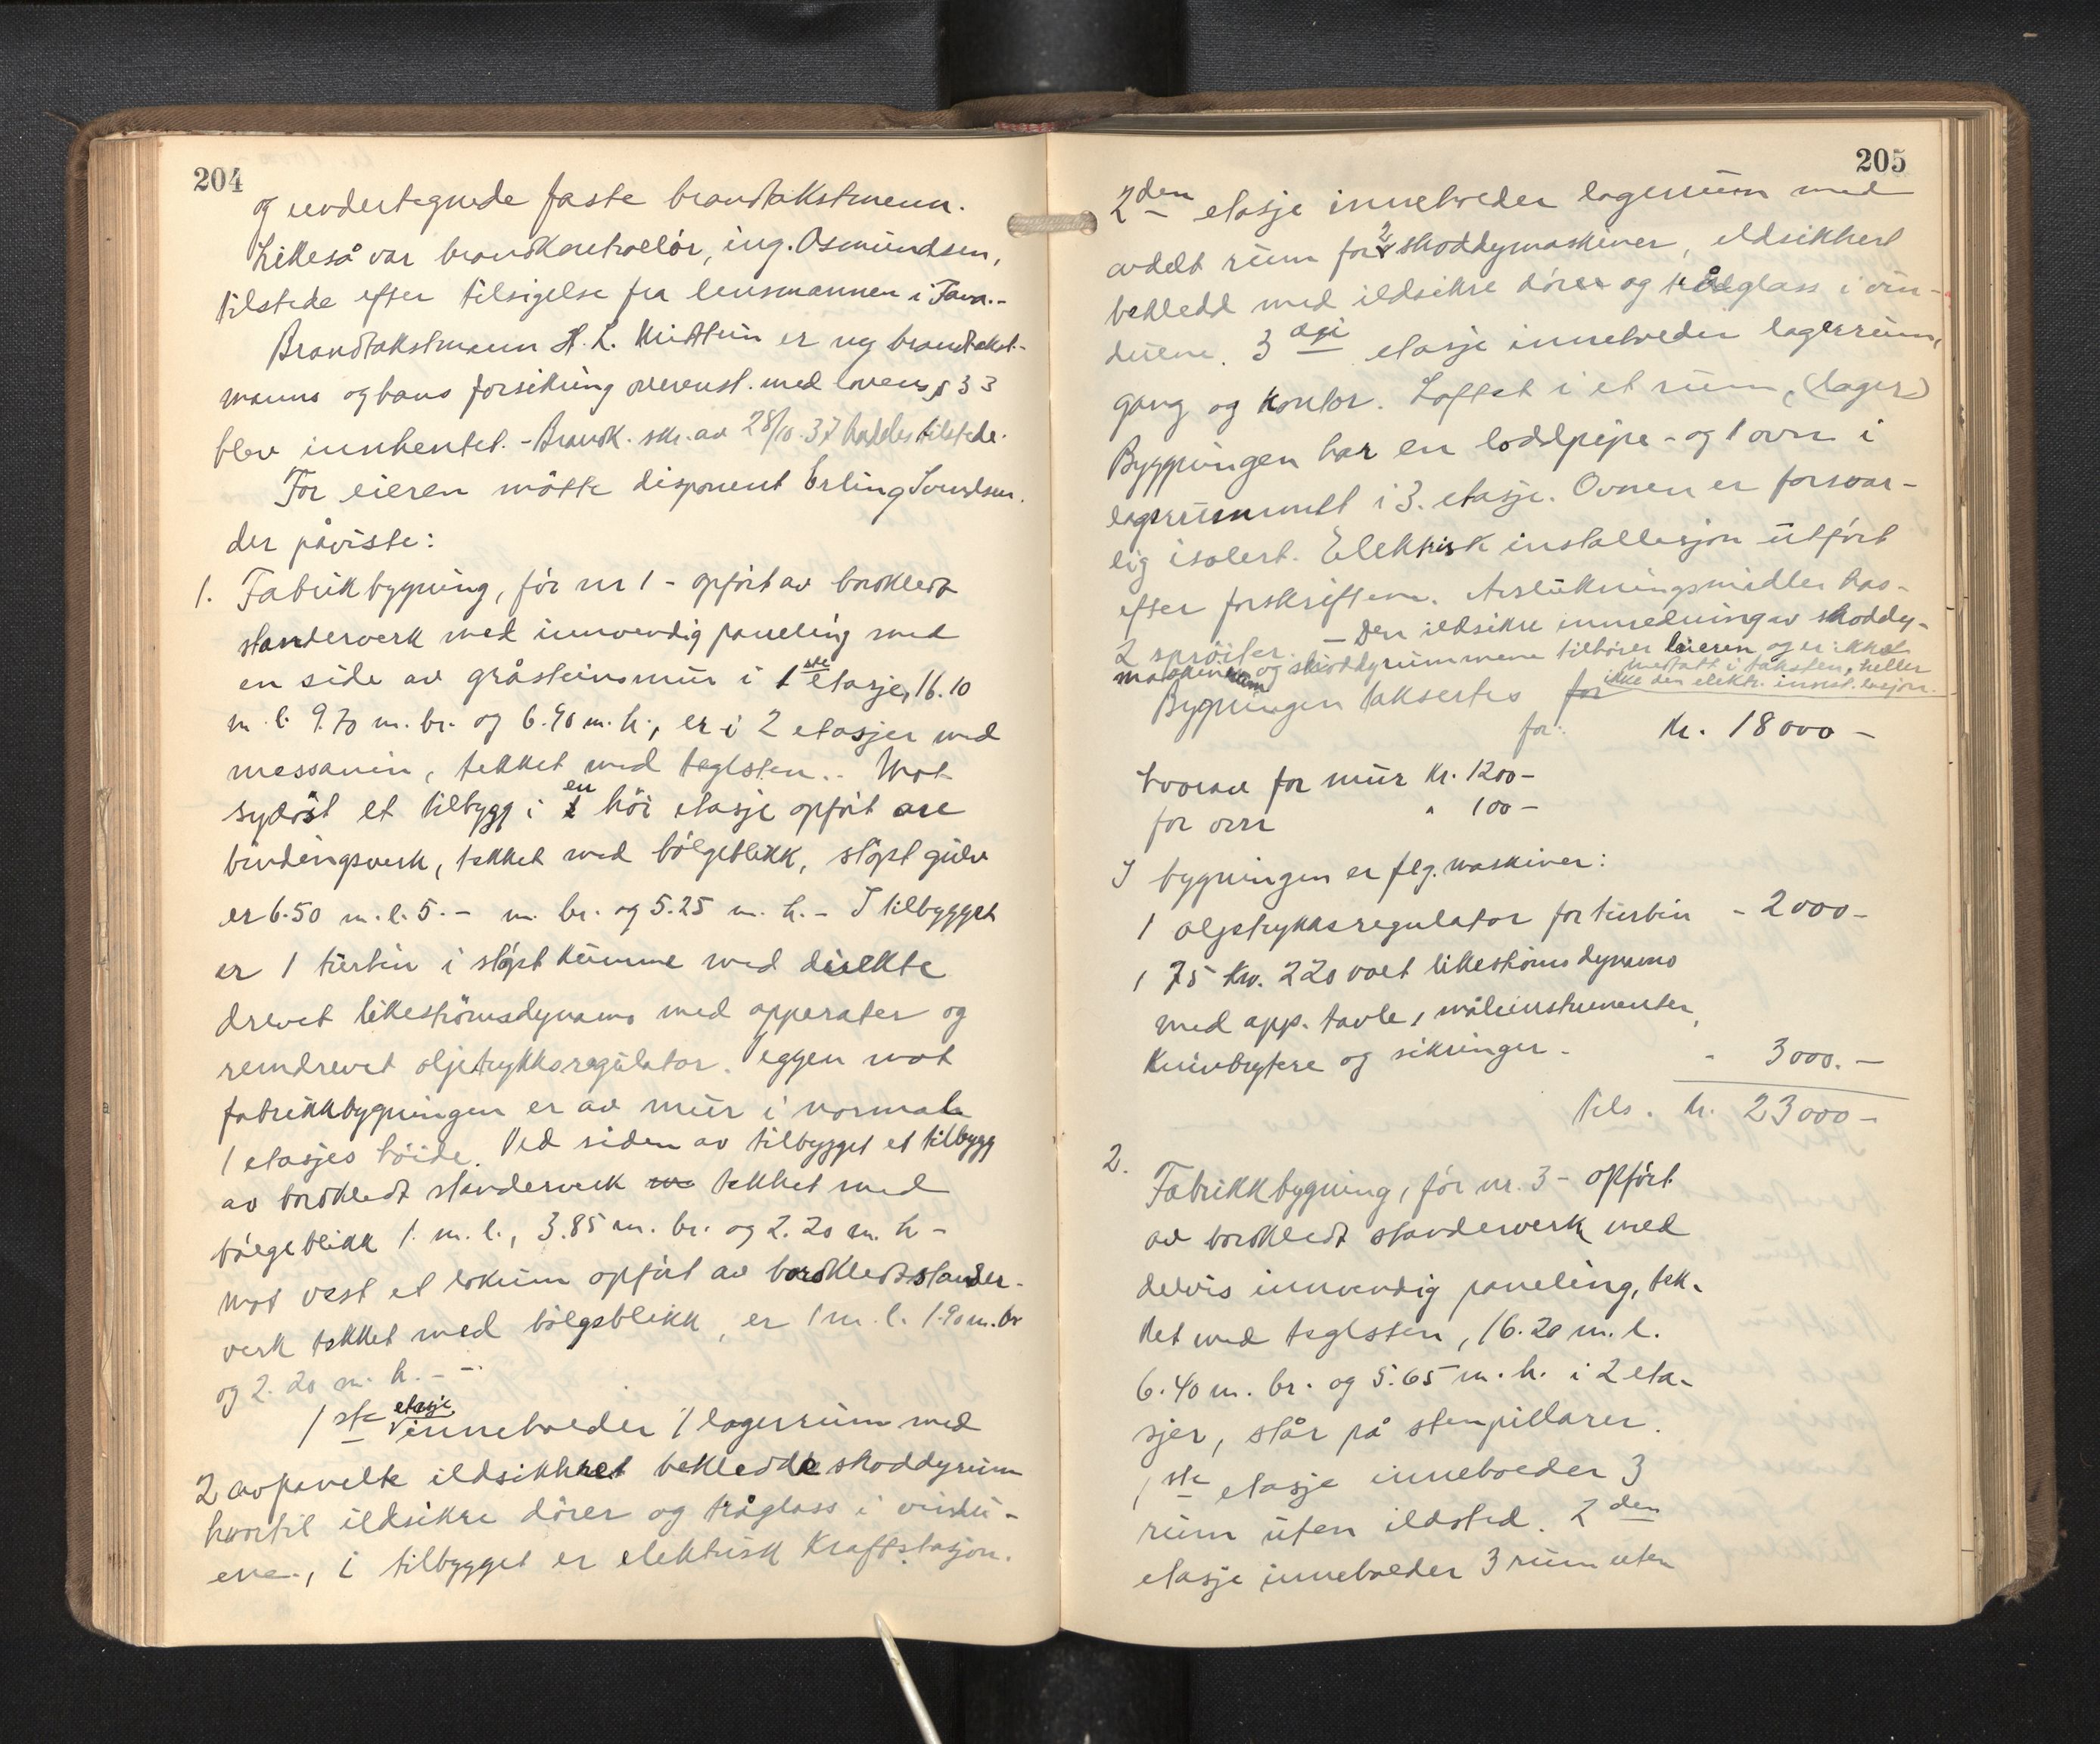 204
og undertegnede faste brandtakstmenn.
Likeså var brandkontrollør, ing. Osmundsen,
tilstede efter tilsigelse fra lensmannen i Fana.-
Brandtakstmann H. L. Midttun er ny brandtakst-
manns og hans forsikring overenst. med lovens § 33
blev innhentet. - Brandk. skr. av 28/10.37 haddes tilstede.
For eieren møtte disponent Erling Svendsen.
der påviste:
1. Fabrikbygning, før nr 1 - opført av bordkledt
standerverk med innvendig paneling med
en side av gråsteinsmur i 1ste etasje, 16.10
m. l. 9.70 m. br. og 6.90 m. h., er i 2 etasjer med
messanin, tekket med teglsten. - Mot
sydøst et tilbygg i en høi etasje opført av
bindingsverk, tekket med bølgeblikk, støpt gulv
er 6.50 m. l. 5.- m. br. og 5.25 m. h. - I tilbygget
er 1 turbin i støpt kumme med direkte
drevet likestrømsdynamo med apperater og
remdrevet oljetrykksregulator. Veggen mot
fabrikkbygningen er av mur i normale
1 etasjes høide. Ved siden av tilbygget et tilbygg
av bordkledt standerverk tekket med
bølgeblikk 1. m. l., 3.85 m. br. og 2.20 m. h -
Mot vest et lokum opført av bordkledt stander-
verk tekket med bølgeblikk, er 1 m. l. 1.90 m. br
og 2.20 m. h. - -
1ste etasje inneholder 1 lagerrum med
2 avpanelte ildsikkret bekledde skoddyrum
hvortil ildsikre dører og tråglass i vindu-
ene., i tilbygget er elektrisk kraftstasjon.
205
2den etasje inneholder lagerrum med
avdelt rum for 2 skoddymaskiner, ildsikkert
bekledd med ildsikre dører og trådglass i vin-
duene. 3dje etasje inneholder lagerrum,
gang og kontor. Loftet i et rum, (lager)
Byggningen har en loddpipe - og 1 ovn i
lagerrummet i 3. etasje. Ovnen er forsvar-
lig isolert. Elektrisk installasjon utført
efter forskriftene. Avslukningsmidler has-
2 sprøiter. - Den ildsikre innredning av skoddy-
maskinrum og skoddyrummene tilhører leieren og er ikke
medtatt i taksten, heller
ikke den elektr. innst.lasjon.
Bygningen taksertes for
for: Kr. 18000 -
hvorav for mur Kr. 1200 -
for ovn " 100 -
I bygningen er flg. maskiner:
1 oljetrykksregulator for turbin - 2000 -
1 75 Kw. 220 volt likestrøms dynamo
med app. tavle, måleinstrumenter,
Knivbrytere og sikringer - - 3000. -
Tils. kr. 23000 -
2. Fabrikkbygning, før nr. 3 - opført
av bordkledt standerverk med
delvis innvendig paneling, tek-
ket med teglsten, 16.20 m. l.
6.40 m. br. og 5.65 m. h. i 2 eta-
sjer, står på stenpillarer.
1ste etasje inneholder 3
rum uten ildsted. 2den
etasje inneholder 3 rum uten